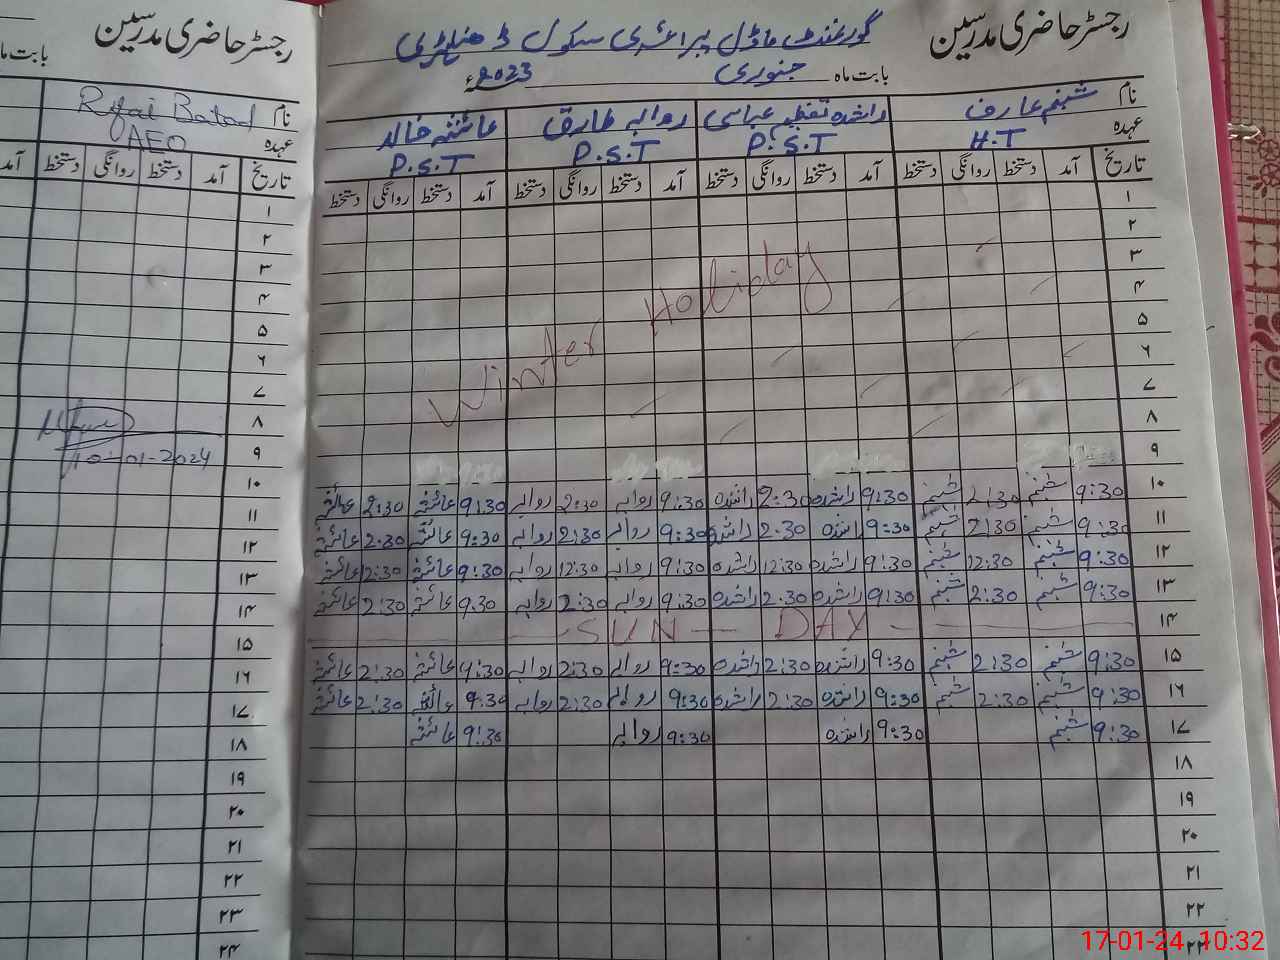 رجسٹر حاضری مدرسین
گورنمنٹ ماڈل پرائمری سکول
بابت ماہ جنوری 2023ء
نام شبنم عارف راشدہ تعظیم عباسی روابہ طارق عائشہ خالد
عہدہ H.T P.S.T P.S.T P.S.T
تاریخ آمد دستخط روانگی دستخط آمد دستخط روانگی دستخط آمد دستخط روانگی دستخط آمد دستخط روانگی دستخط
۱
۲
۳
۴
۵
۶
۷
۸
Winter Holiday
۹
۱۰ 9:30 شبنم 2:30 شبنم 9:30 راشدہ 2:30 راشدہ 9:30 روابہ 2:30 روابہ 9:30 عائشہ 2:30 عائشہ
۱۱ 9:30 شبنم 2:30 شبنم 9:30 راشدہ 2:30 راشدہ 9:30 روابہ 2:30 روابہ 9:30 عائشہ 2:30 عائشہ
۱۲ 9:30 شبنم 12:30 شبنم 9:30 راشدہ 12:30 راشدہ 9:30 روابہ 12:30 روابہ 9:30 عائشہ 2:30 عائشہ
۱۳ 9:30 شبنم 2:30 شبنم 9:30 راشدہ 2:30 راشدہ 9:30 روابہ 2:30 روابہ 9:30 عائشہ 2:30 عائشہ
۱۴ SUN DAY
۱۵ 9:30 شبنم 2:30 شبنم 9:30 راشدہ 2:30 راشدہ 9:30 روابہ 2:30 روابہ 9:30 عائشہ 2:30 عائشہ
۱۶ 9:30 شبنم 2:30 شبنم 9:30 راشدہ 2:30 راشدہ 9:30 روابہ 2:30 روابہ 9:30 عائشہ 2:30 عائشہ
۱۷ 9:30 شبنم 9:30 راشدہ 9:30 روابہ 9:30 عائشہ
۱۸
۱۹
۲۰
۲۱
۲۲
رجسٹر حاضری مدرسین
بابت ماہ
نام
عہدہ AEO
تاریخ آمد دستخط روانگی دستخط آمد
۱
۲
۳
۴
۵
۶
۷
۸
۹
10-01-2024
۱۰
۱۱
۱۲
۱۳
۱۴
۱۵
۱۶
۱۷
۱۸
۱۹
۲۰
۲۱
۲۲
۲۳
۲۴
17-01-24 10:32